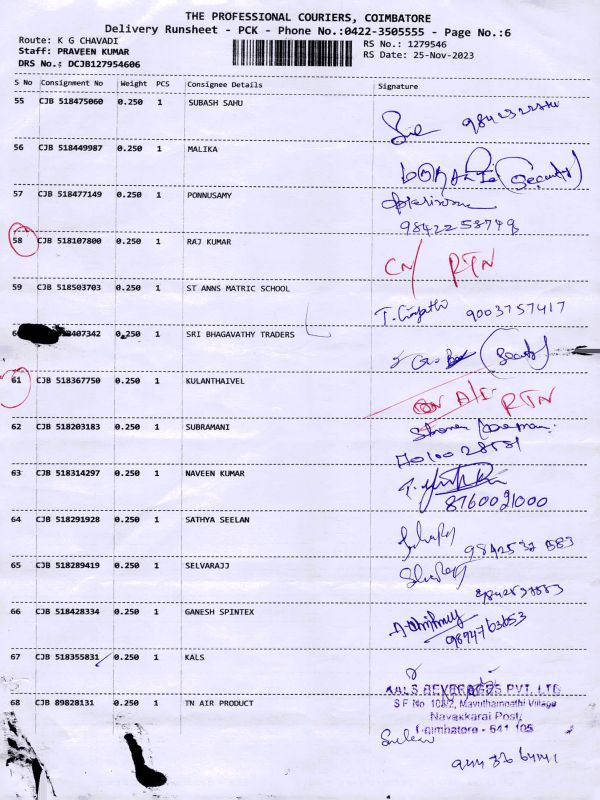 THE PROFESSIONAL COURIERS, COIMBATORE
Delivery Runsheet - PCK - Phone No.:0422-3505555 - Page No.:6
Route: K G CHAVADI
RS No.: 1279546
Staff: PRAVEEN KUMAR
RS Date: 25-Nov-2023
DRS No.: DCJB127954606
S No Consignment No Weight PCS Consignee Details Signature
55 CJB 518475060 0.250 1 SUBASH SAHU
56 CJB 518449987 0.250 1 MALIKA
(Security)
57 CJB 518477149 0.250 1 PONNUSAMY
9842258749
58 CJB 518107800 0.250 1 RAJ KUMAR
RTN
59 CJB 518503703 0.250 1 ST ANNS MATRIC SCHOOL
9003757417
407342 0.250 1 SRI BHAGAVATHY TRADERS
61 CJB 518367750 0.250 1 KULANTHAIVEL
RTN
62 CJB 518203183 0.250 1 SUBRAMANI
63 CJB 518314297 0.250 1 NAVEEN KUMAR
8760021000
64 CJB 518291928 0.250 1 SATHYA SEELAN
65 CJB 518289419 0.250 1 SELVARAJJ
66 CJB 518428334 0.250 1 GANESH SPINTEX
67 CJB 518355831 0.250 1 KALS
KALS BEVERAGES PVT. LTD
68 CJB 89828131 0.250 1 TN AIR PRODUCT
S F No 108/2, Mavuthampathi Village
Navakkarai Post,
Coimbatore - 641 105